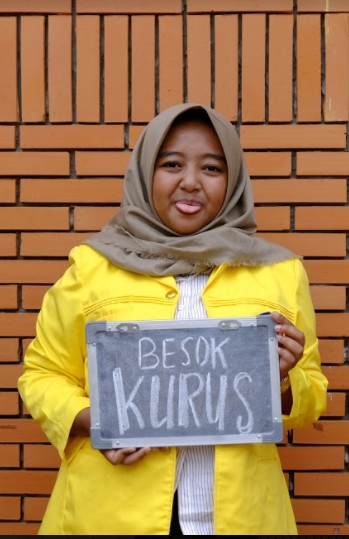 BESOK
KURUS